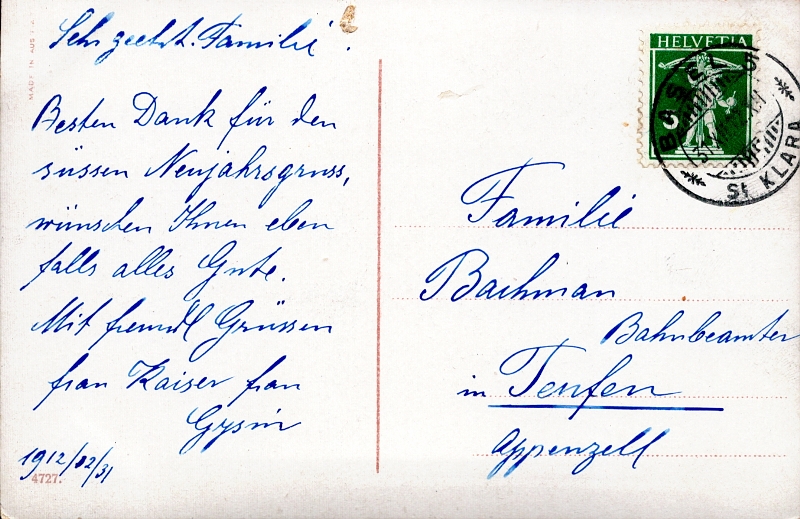 Sehr geehrt. Familie.
Besten Dank für den
süssen Neujahrsgruss,
wünschen Ihnen eben
falls alles Gute.
Mit freundl Grüssen
frau Kaiser frau
Gysin
1912/02/31
4727.
MADE IN AUS
HELVETIA
5
BASEL
St KLARA
Familie
Bachman
Bahnbeamter
in Teufen
Appenzell